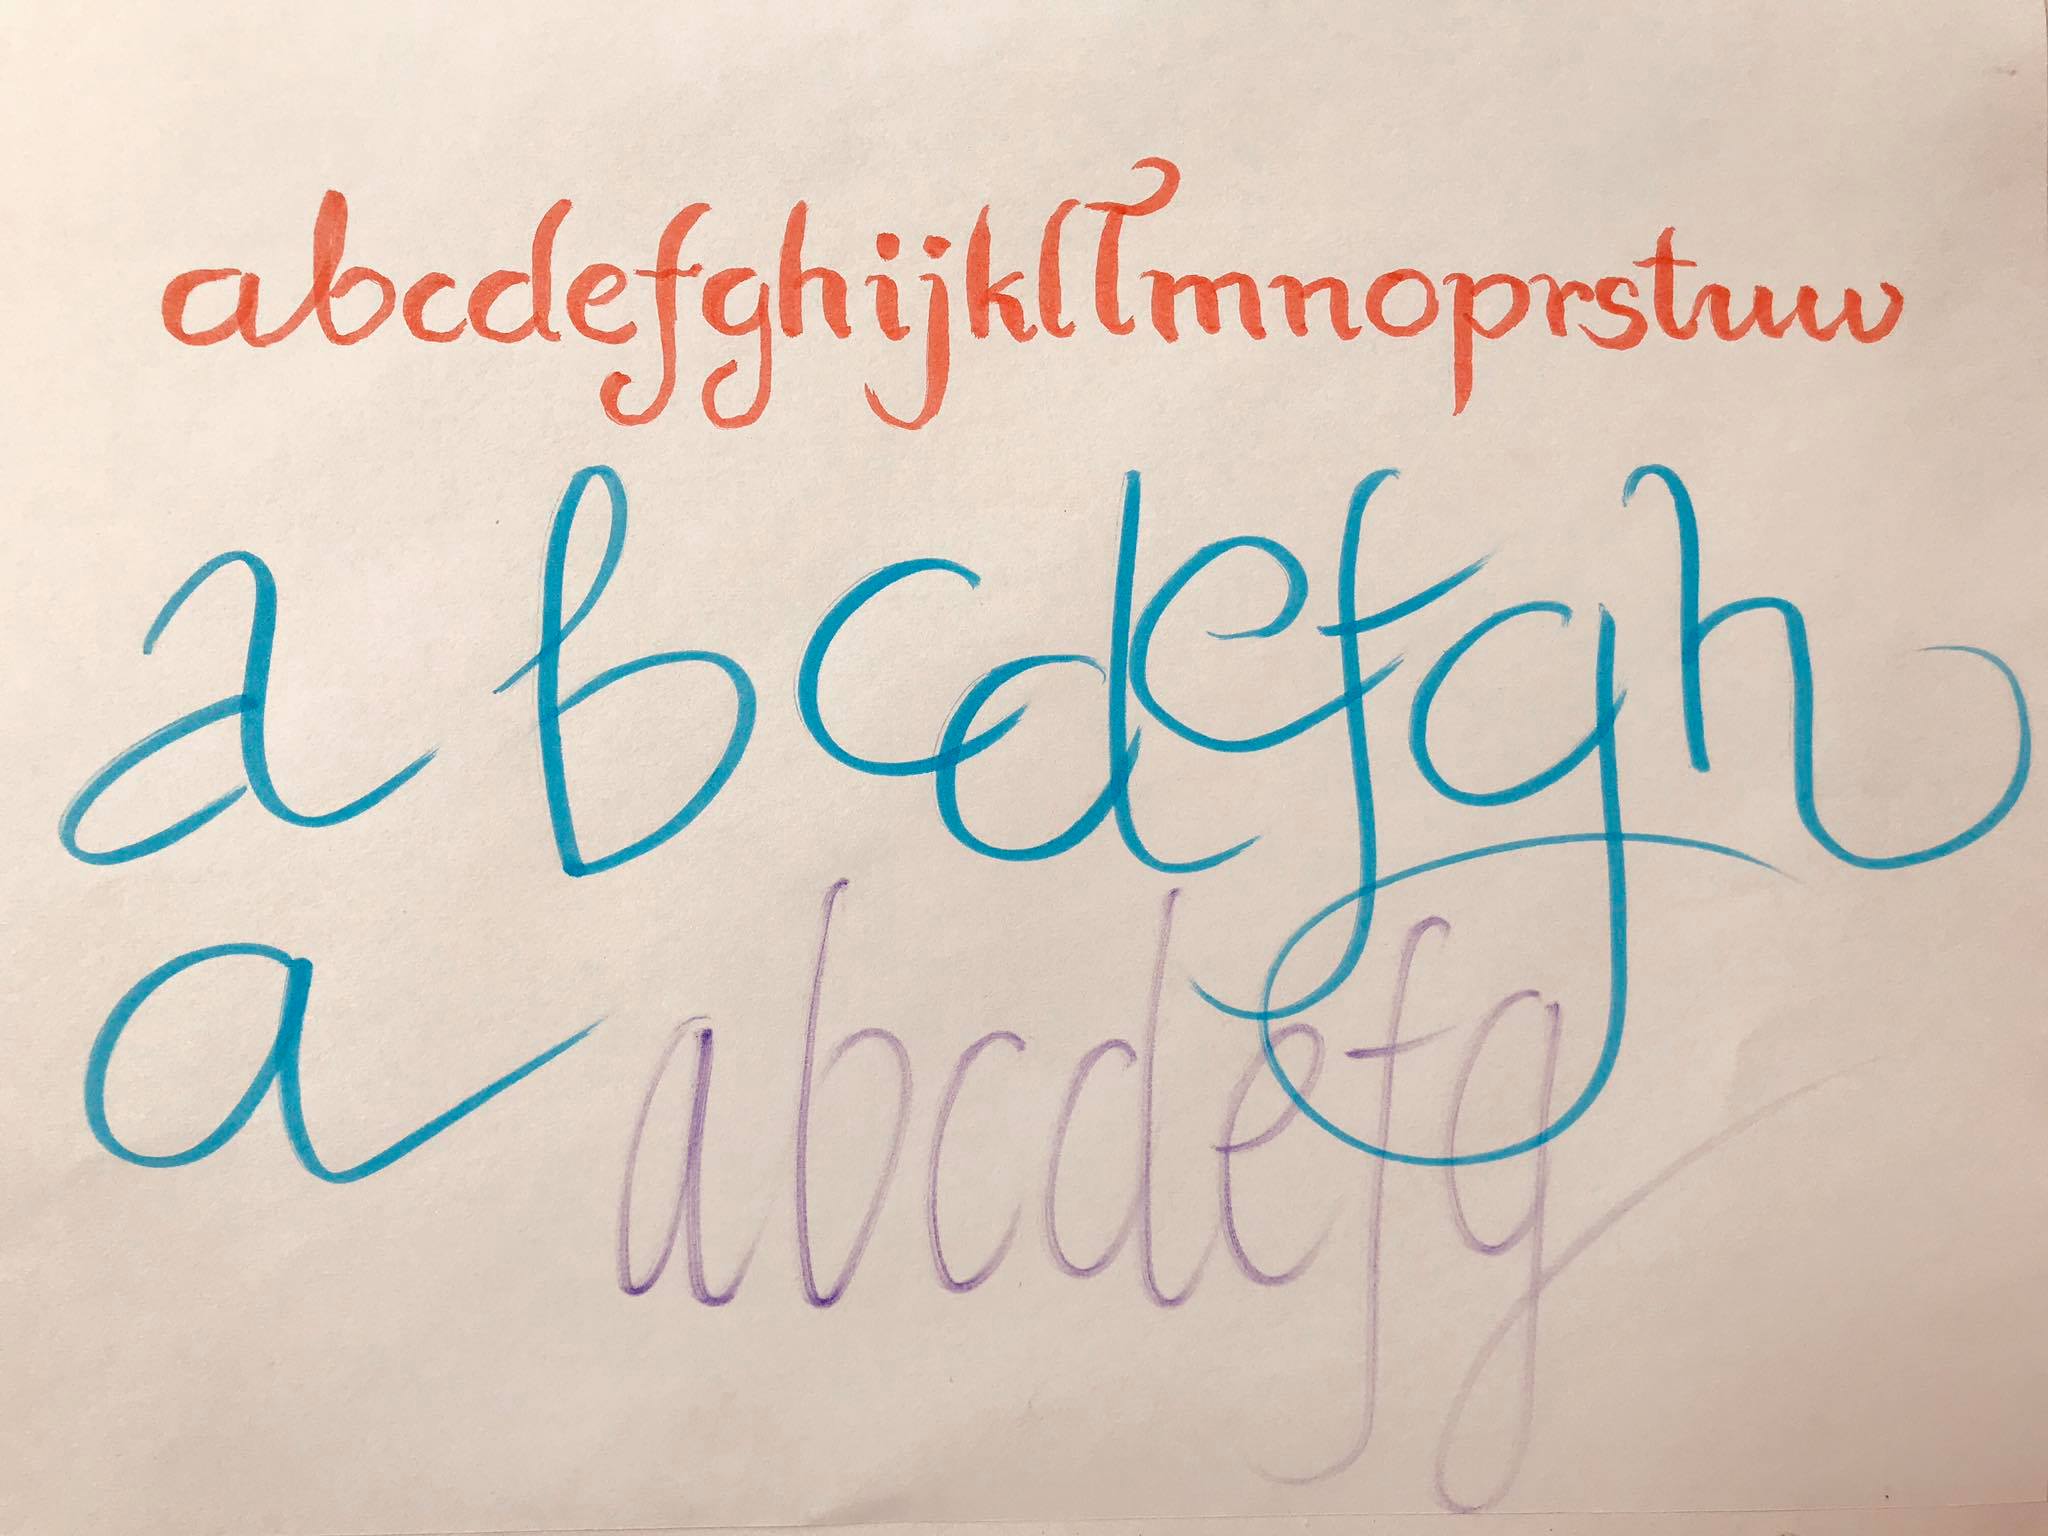 abcdefghijkllmnoprstuw
a b c d e f g h
a
abcdefg